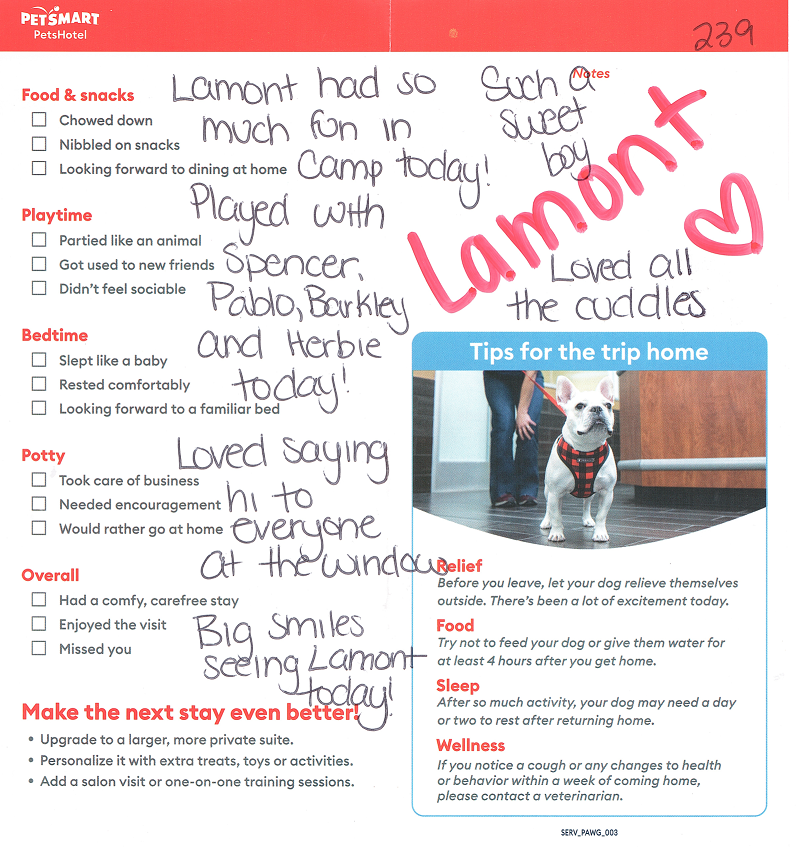 PETSMART
PetsHotel
239
Notes
Food & snacks
Chowed down
Nibbled on snacks
Looking forward to dining at home
Playtime
Partied like an animal
Got used to new friends
Didn't feel sociable
Bedtime
Slept like a baby
Rested comfortably
Looking forward to a familiar bed
Potty
Took care of business
Needed encouragement
Would rather go at home
Overall
Had a comfy, carefree stay
Enjoyed the visit
Missed you
Lamont had so
much fun in
Camp today!
Played with
Spencer,
Pablo, Barkley
and Herbie
today!
Loved saying
hi to
everyone
at the window
Big smiles
seeing Lamont
today!
Such a
sweet
boy
Lamont
Loved all
the cuddles
Make the next stay even better!
• Upgrade to a larger, more private suite.
• Personalize it with extra treats, toys or activities.
• Add a salon visit or one-on-one training sessions.
Tips for the trip home
Relief
Before you leave, let your dog relieve themselves
outside. There's been a lot of excitement today.
Food
Try not to feed your dog or give them water for
at least 4 hours after you get home.
Sleep
After so much activity, your dog may need a day
or two to rest after returning home.
Wellness
If you notice a cough or any changes to health
or behavior within a week of coming home,
please contact a veterinarian.
SERV_PAWG_003